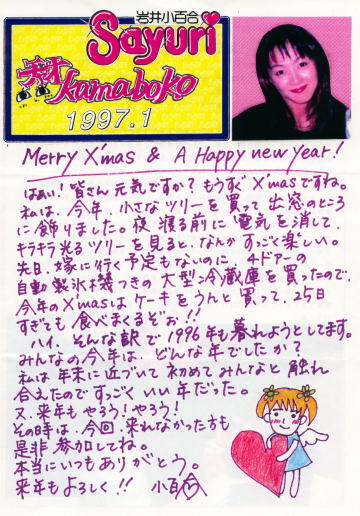 岩井小百合
Sayuri
新オ kamaboko
1997.1
Merry X'mas & A Happy new year!
はぁい!皆さん元気ですか?もうすぐX'masですね。
私は、今年、小さなツリーを買って出窓のところ
に飾りました。夜、寝る前に電気を消して、
キラキラ光るツリーを見ると、なんかすっごく楽しい。
先日、嫁に行く予定もないのに、4ドアーの
自動製氷機つきの大型冷蔵庫を買ったので、
今年のX'masはケーキをうんと買って、25日
すぎても食べまくるぞぉ!!
ハイ、そんな訳で1996年も暮れようとしてます。
みんなの今年は、どんな年でしたか?
私は年末に近づいて初めてみんなと触れ
合えたのですっごくいい年だった。
又、来年もやろう!やろう!
その時は、今回、来れなかった方も
是非参加してね。
本当にいつもありがとう。
来年もよろしく!! 小百合